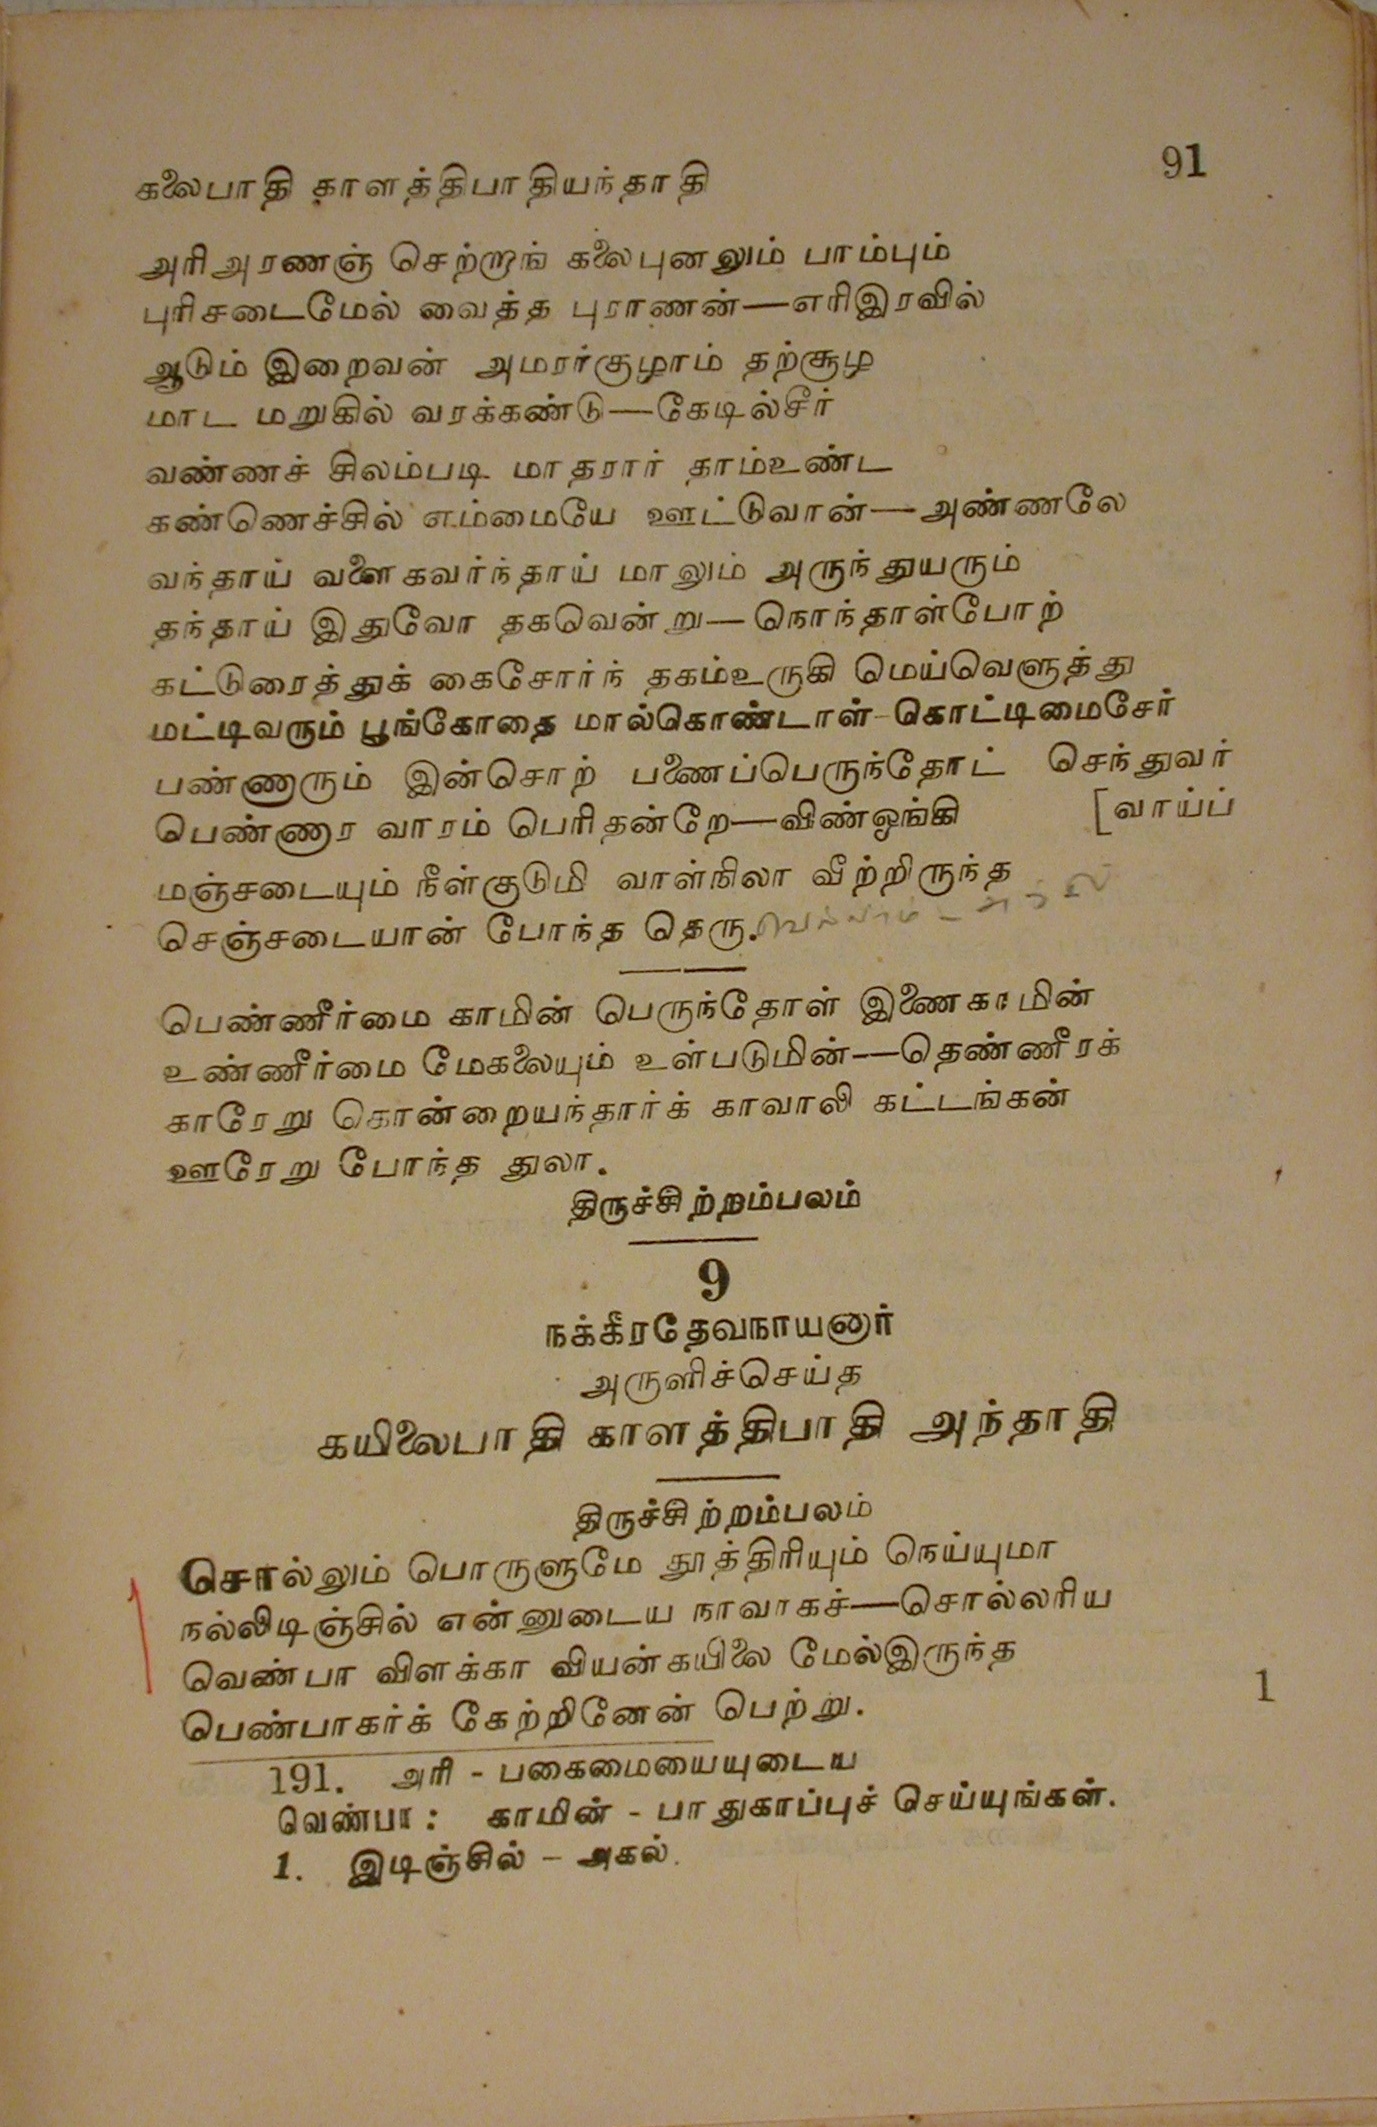 கலைபாதி காளத்திபாதியந்தாதி 91
அரிஅரணஞ் செற்றாங் கலைபுனலும் பாம்பும்
புரிசடைமேல் வைத்த புராணன்—எரிஇரவில்
ஆடும் இறைவன் அமரர்குழாம் தற்சூழ
மாட மறுகில் வரக்கண்டு—கேடில்சீர்
வண்ணச் சிலம்படி மாதரார் தாம்உண்ட
கண்ணெச்சில் எம்மையே ஊட்டுவான்—அண்ணலே
வந்தாய் வளைகவர்ந்தாய் மாலும் அருந்துயரும்
தந்தாய் இதுவோ தகவென்று—நொந்தாள்போற்
கட்டுரைத்துக் கைசோர்ந் தகம்உருகி மெய்வெளுத்து
மட்டிவரும் பூங்கோதை மால்கொண்டாள்-கொட்டிமைசேர்
பண்ணாரும் இன்சொற் பணைப்பெருந்தோட் செந்துவர்
பெண்ணார வாரம் பெரிதன்றே—விண்ஓங்கி [வாய்ப்
மஞ்சடையும் நீள்குடுமி வாள்நிலா வீற்றிருந்த
செஞ்சடையான் போந்த தெரு.
பெண்ணீர்மை காமின் பெருந்தோள் இணைகாமின்
உண்ணீர்மை மேகலையும் உள்படுமின்——தெண்ணீரக்
காரேறு கொன்றையந்தார்க் காவாலி கட்டங்கன்
ஊரேறு போந்த துலா.
திருச்சிற்றம்பலம்
9
நக்கீரதேவநாயனார்
அருளிச்செய்த
கயிலைபாதி காளத்திபாதி அந்தாதி
திருச்சிற்றம்பலம்
சொல்லும் பொருளுமே தூத்திரியும் நெய்யுமா
நல்லிடிஞ்சில் என்னுடைய நாவாகச்—சொல்லரிய
வெண்பா விளக்கா வியன்கயிலை மேல்இருந்த
பெண்பாகர்க் கேற்றினேன் பெற்று. 1
191. அரி - பகைமையையுடைய
வெண்பா : காமின் - பாதுகாப்புச் செய்யுங்கள்.
1. இடிஞ்சில் - அகல்.